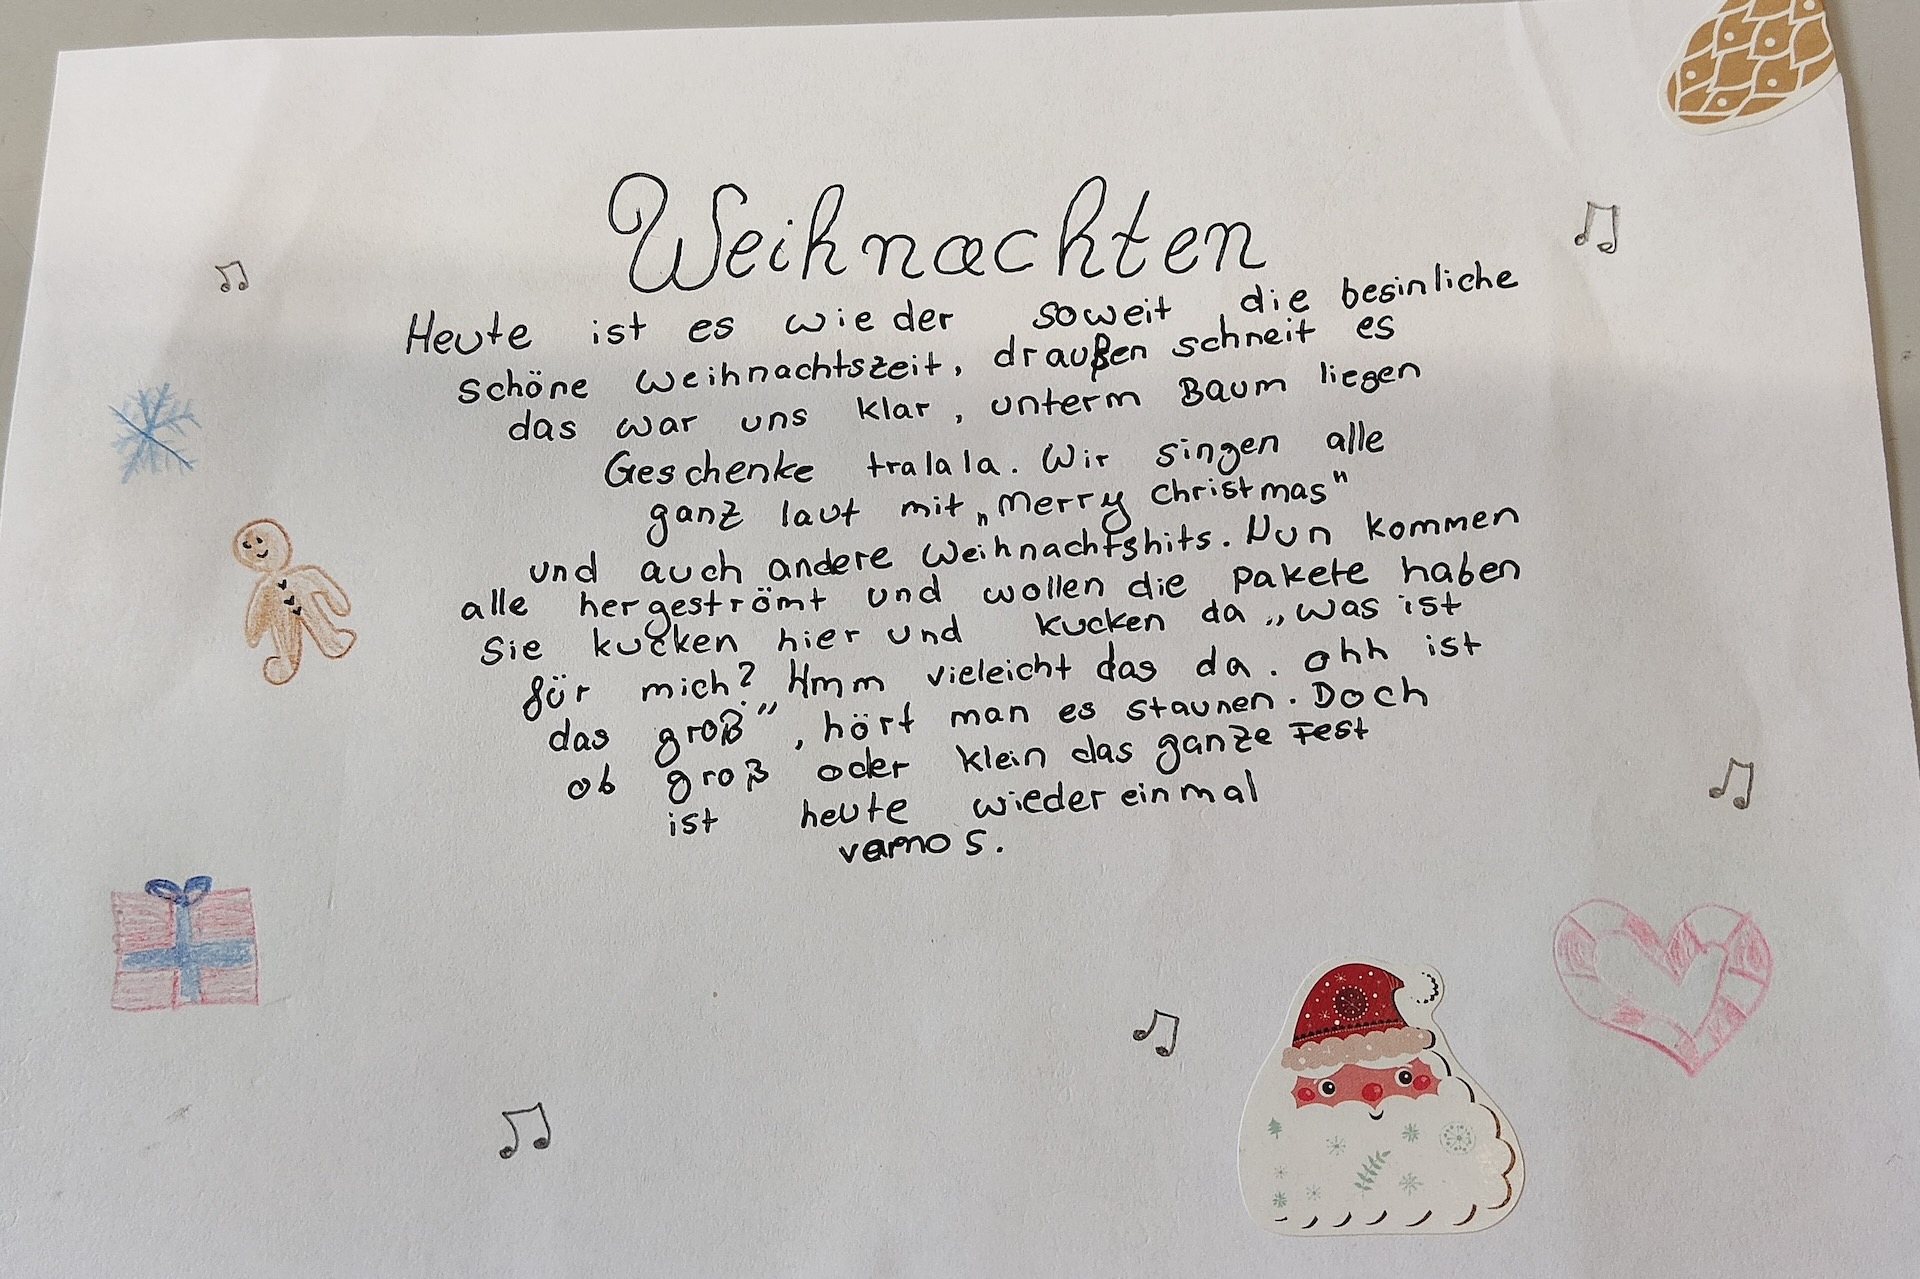 Weihnachten
Heute ist es wieder soweit die besinliche
schöne Weihnachtszeit, draußen schneit es
das war uns klar, unterm Baum liegen
Geschenke tralala. Wir singen alle
ganz laut mit „Merry Christmas"
und auch andere Weihnachtshits. Nun kommen
alle hergeströmt und wollen die Pakete haben
Sie kucken hier und kucken da „Was ist
für mich? Hmm vieleicht das da. ohh ist
das groß", hört man es staunen. Doch
ob groß oder klein das ganze Fest
ist heute wieder einmal
vamos.